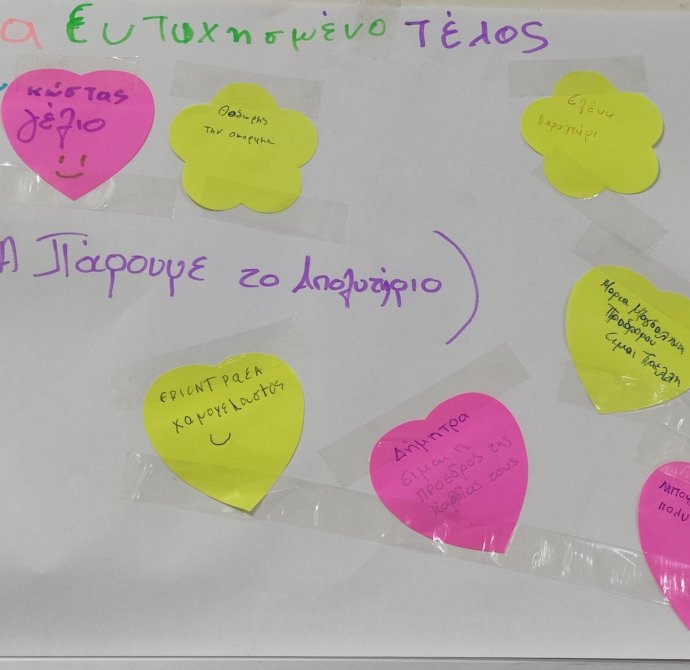 α Ευτυχισμένο Τέλος
Κώστας
γέλιο
Θοδωρής
Την σκορημα
Ελένη
Παραλτίρι
Α Πάρουμε το Απολυτήριο)
Μαρια Μαγδαληνη
Προδρομου
Ειμαι Τρελλη
ΕΡΙΟΝΤ ΡΑΕΛ
χαμογελαστος
Δήμητρα
Είμαι η
πρόεδρος της
καρδιάς τους
πολυ